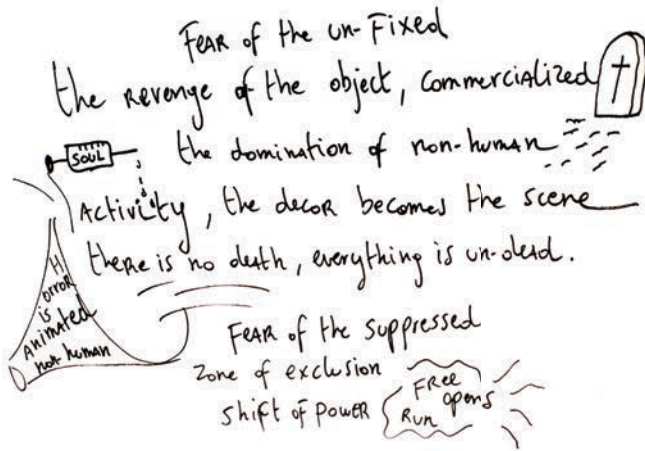 FEAR of the un-Fixed
the revenge of the object, commercialized
SOUL
the domination of non-human
Activity, the decor becomes the scene
there is no death, everything is un-dead.
H
orror
is
Animated
non human
FEAR of the suppressed
zone of exclusion
shift of power
FREE
opens
RUN